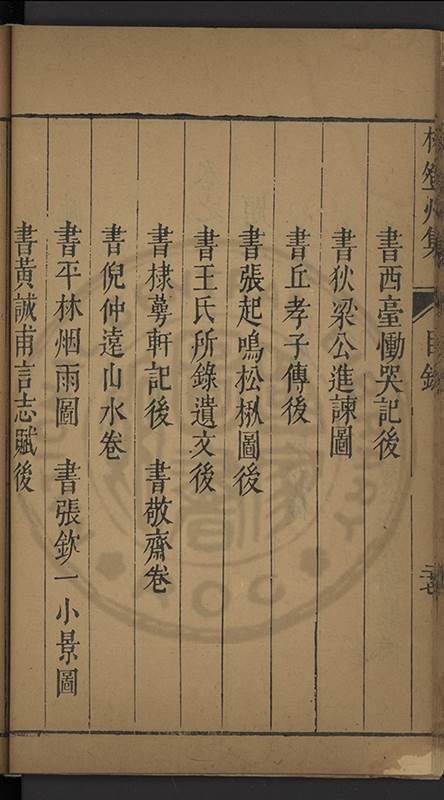 州集
目錄
書西臺慟哭記後
書狄梁公進諫圖
書丘孝子傳後
書張起鳴松楸圖後
書王氏所錄遺文後
書棣萼軒記後　書敬齋卷
書倪仲遠山水卷
書平林烟雨圖　書張欽一小景圖
書黃誠甫言志賦後